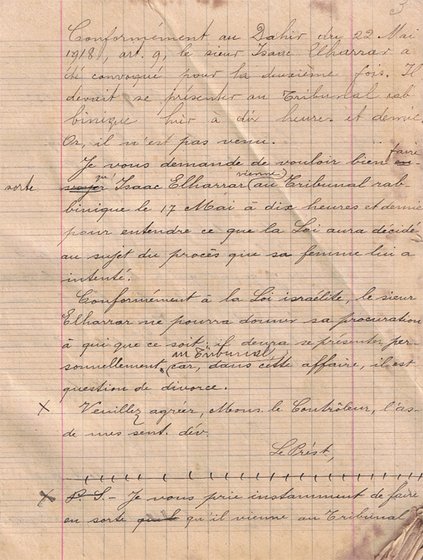 3
Conformément au Dahir du 22 Mai
1918, art. 9, le sieur Isaac Elharrar a
été convoqué pour la deuxième fois. Il
devait se présenter au Tribunal rab-
binique hier à dix heures et demie
Or, il n'est pas venu.
Je vous demande de vouloir bien faire en
sorte qu' Isaac Elharrar vienne au Tribunal rab-
binique le 17 Mai à dix heures et demie
pour entendre ce que la Loi aura décidé
au sujet du procès que sa femme lui a
intenté.
Conformément à la Loi israélite, le sieur
Elharrar ne pourra donner sa procuration
à qui que ce soit, il devra se présenter per-
sonnellement au Tribunal, car, dans cette affaire, il est
question de divorce.
x Veuillez agréer, Mons. le Contrôleur, l'as-
de mes sent. dév.
Le Prést,
x P. S. - Je vous prie instamment de faire
en sorte qu'il vienne au Tribunal